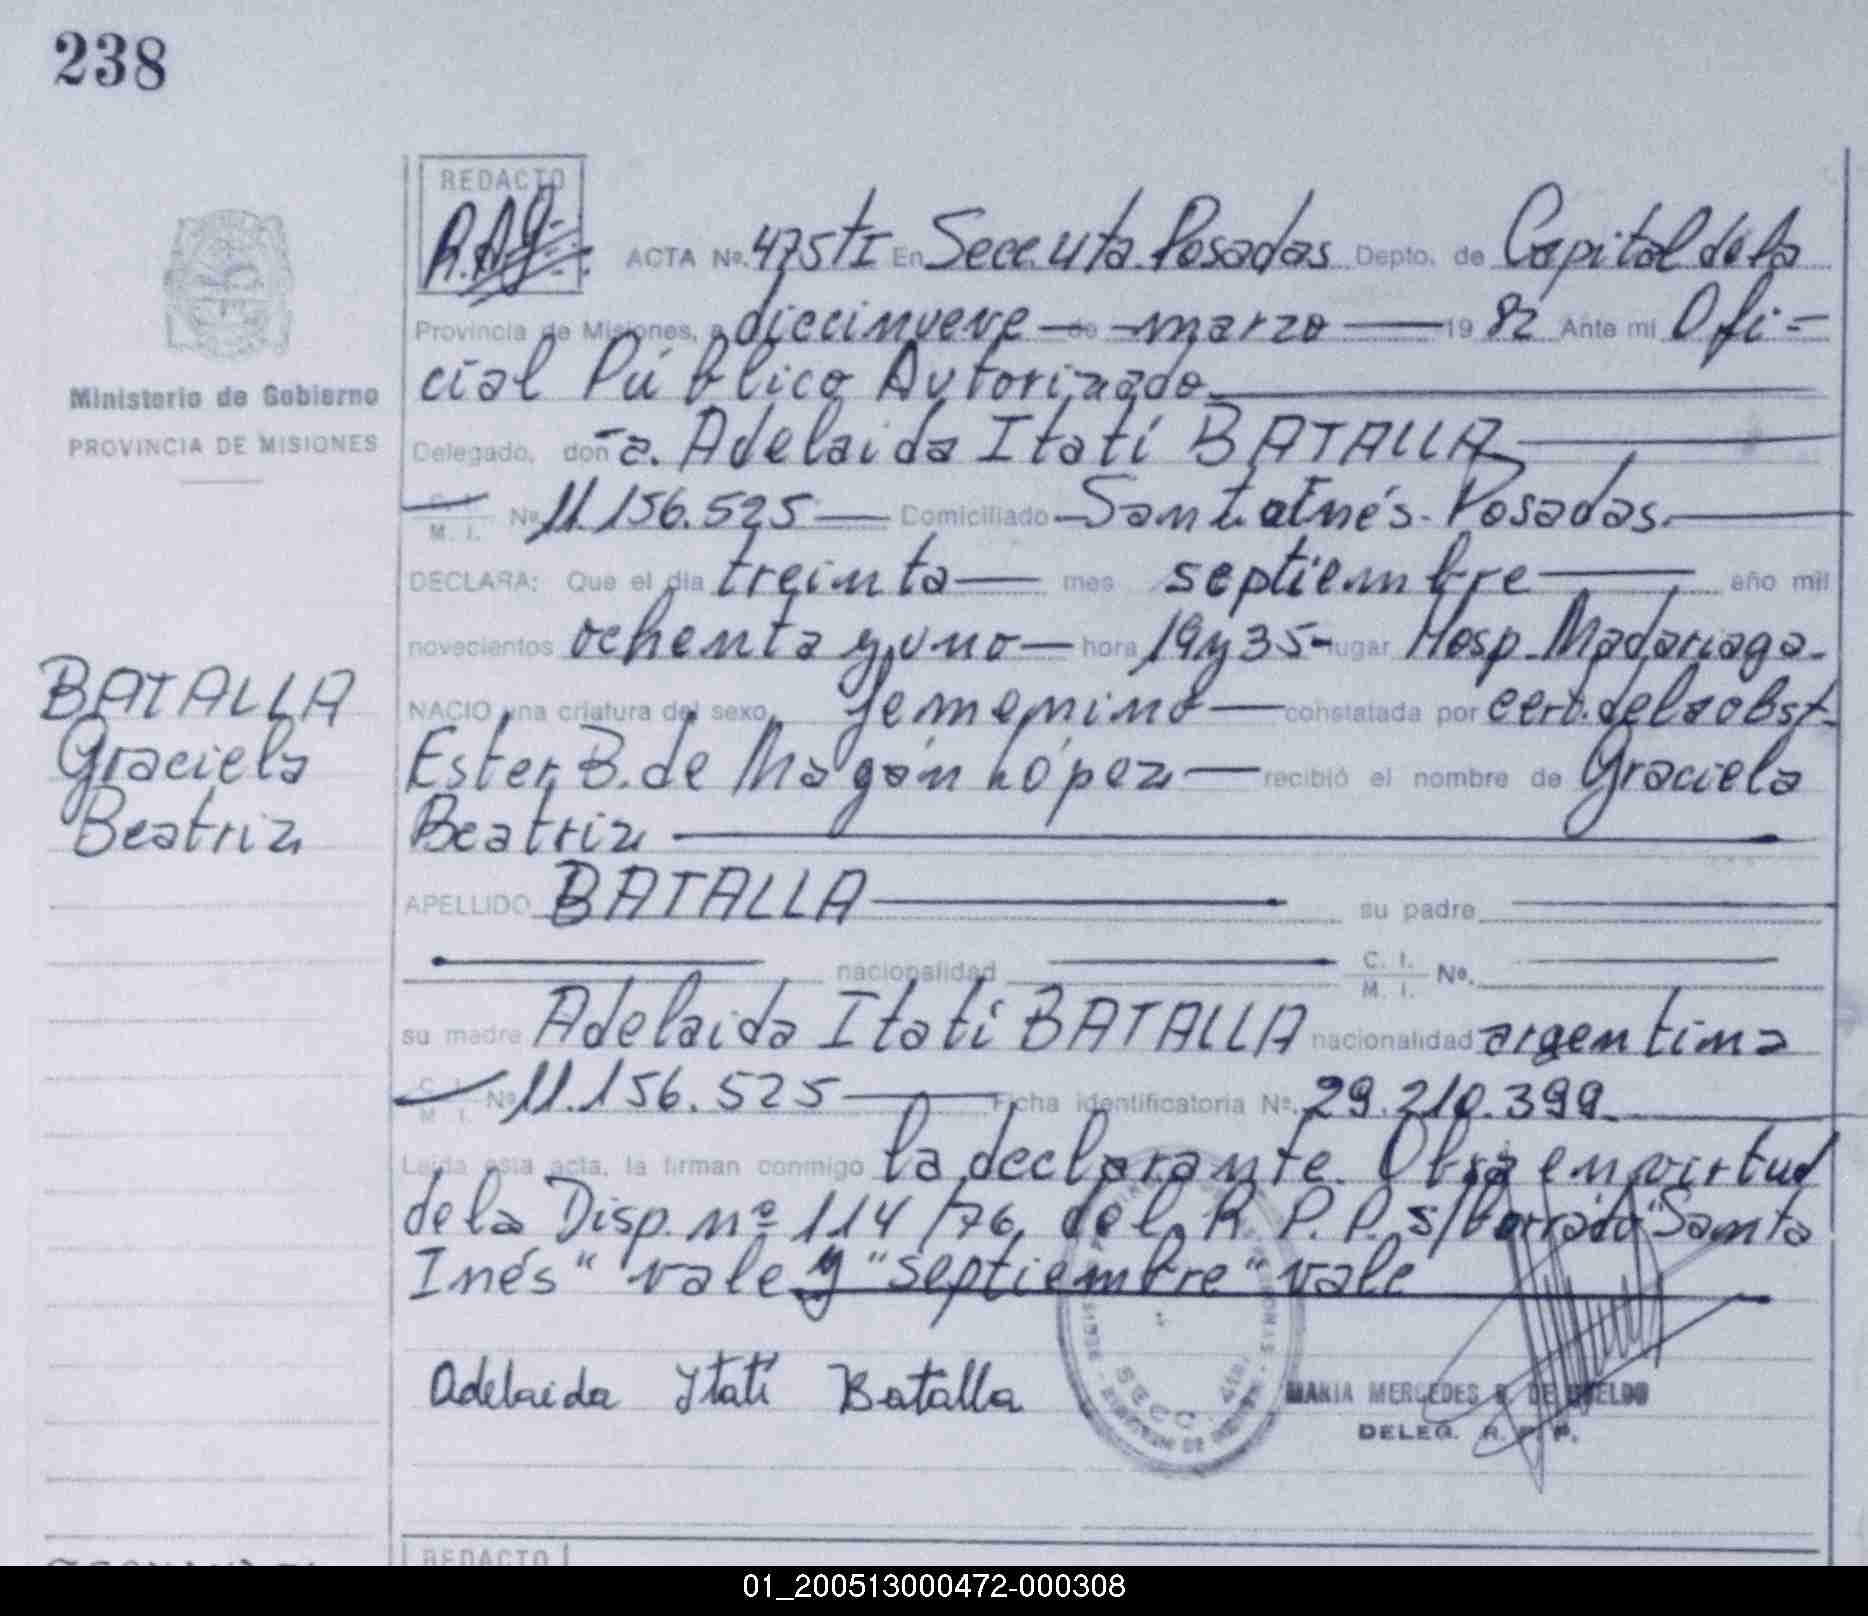 238
REDACTO
R.A.G.
ACTA Nº. 475 t I En Secc. 4ta. Posadas Depto. de Capital de la
Provincia de Misiones, a diecinueve de marzo 19 82 Ante mí Ofi=
cial Público Autorizado
Ministerio de Gobierno
PROVINCIA DE MISIONES
Delegado, doña. Adelaida Itatí BATALLA
C. I. M. I. Nº 11.156.525 Domiciliado Santa Inés - Posadas.
DECLARA: Que el día treinta mes septiembre año mil
novecientos ochenta y uno hora 19 y 35 lugar Hosp. Madariaga
NACIO una criatura del sexo femenino constatada por cert. de la obst.
Ester B. de Magán López recibió el nombre de Graciela
Beatriz
BATALLA
Graciela
Beatriz
APELLIDO BATALLA su padre
nacionalidad C. I. M. I. Nº.
su madre Adelaida Itatí BATALLA nacionalidad argentina
C. I. M. I. Nº 11.156.525 Ficha identificatoria Nº. 29.210.399
Leída esta acta, la firman conmigo la declarante. Obra en virtud
de la Disp. nº 114/76 del R. P. P. s/borrado "Santa
Inés" vale y "septiembre" vale
Adelaida Itatí Batalla
SECC. 4ta.
MARIA MERCEDES DE
DELEG. R. P. P.
REDACTO
01_200513000472-000308